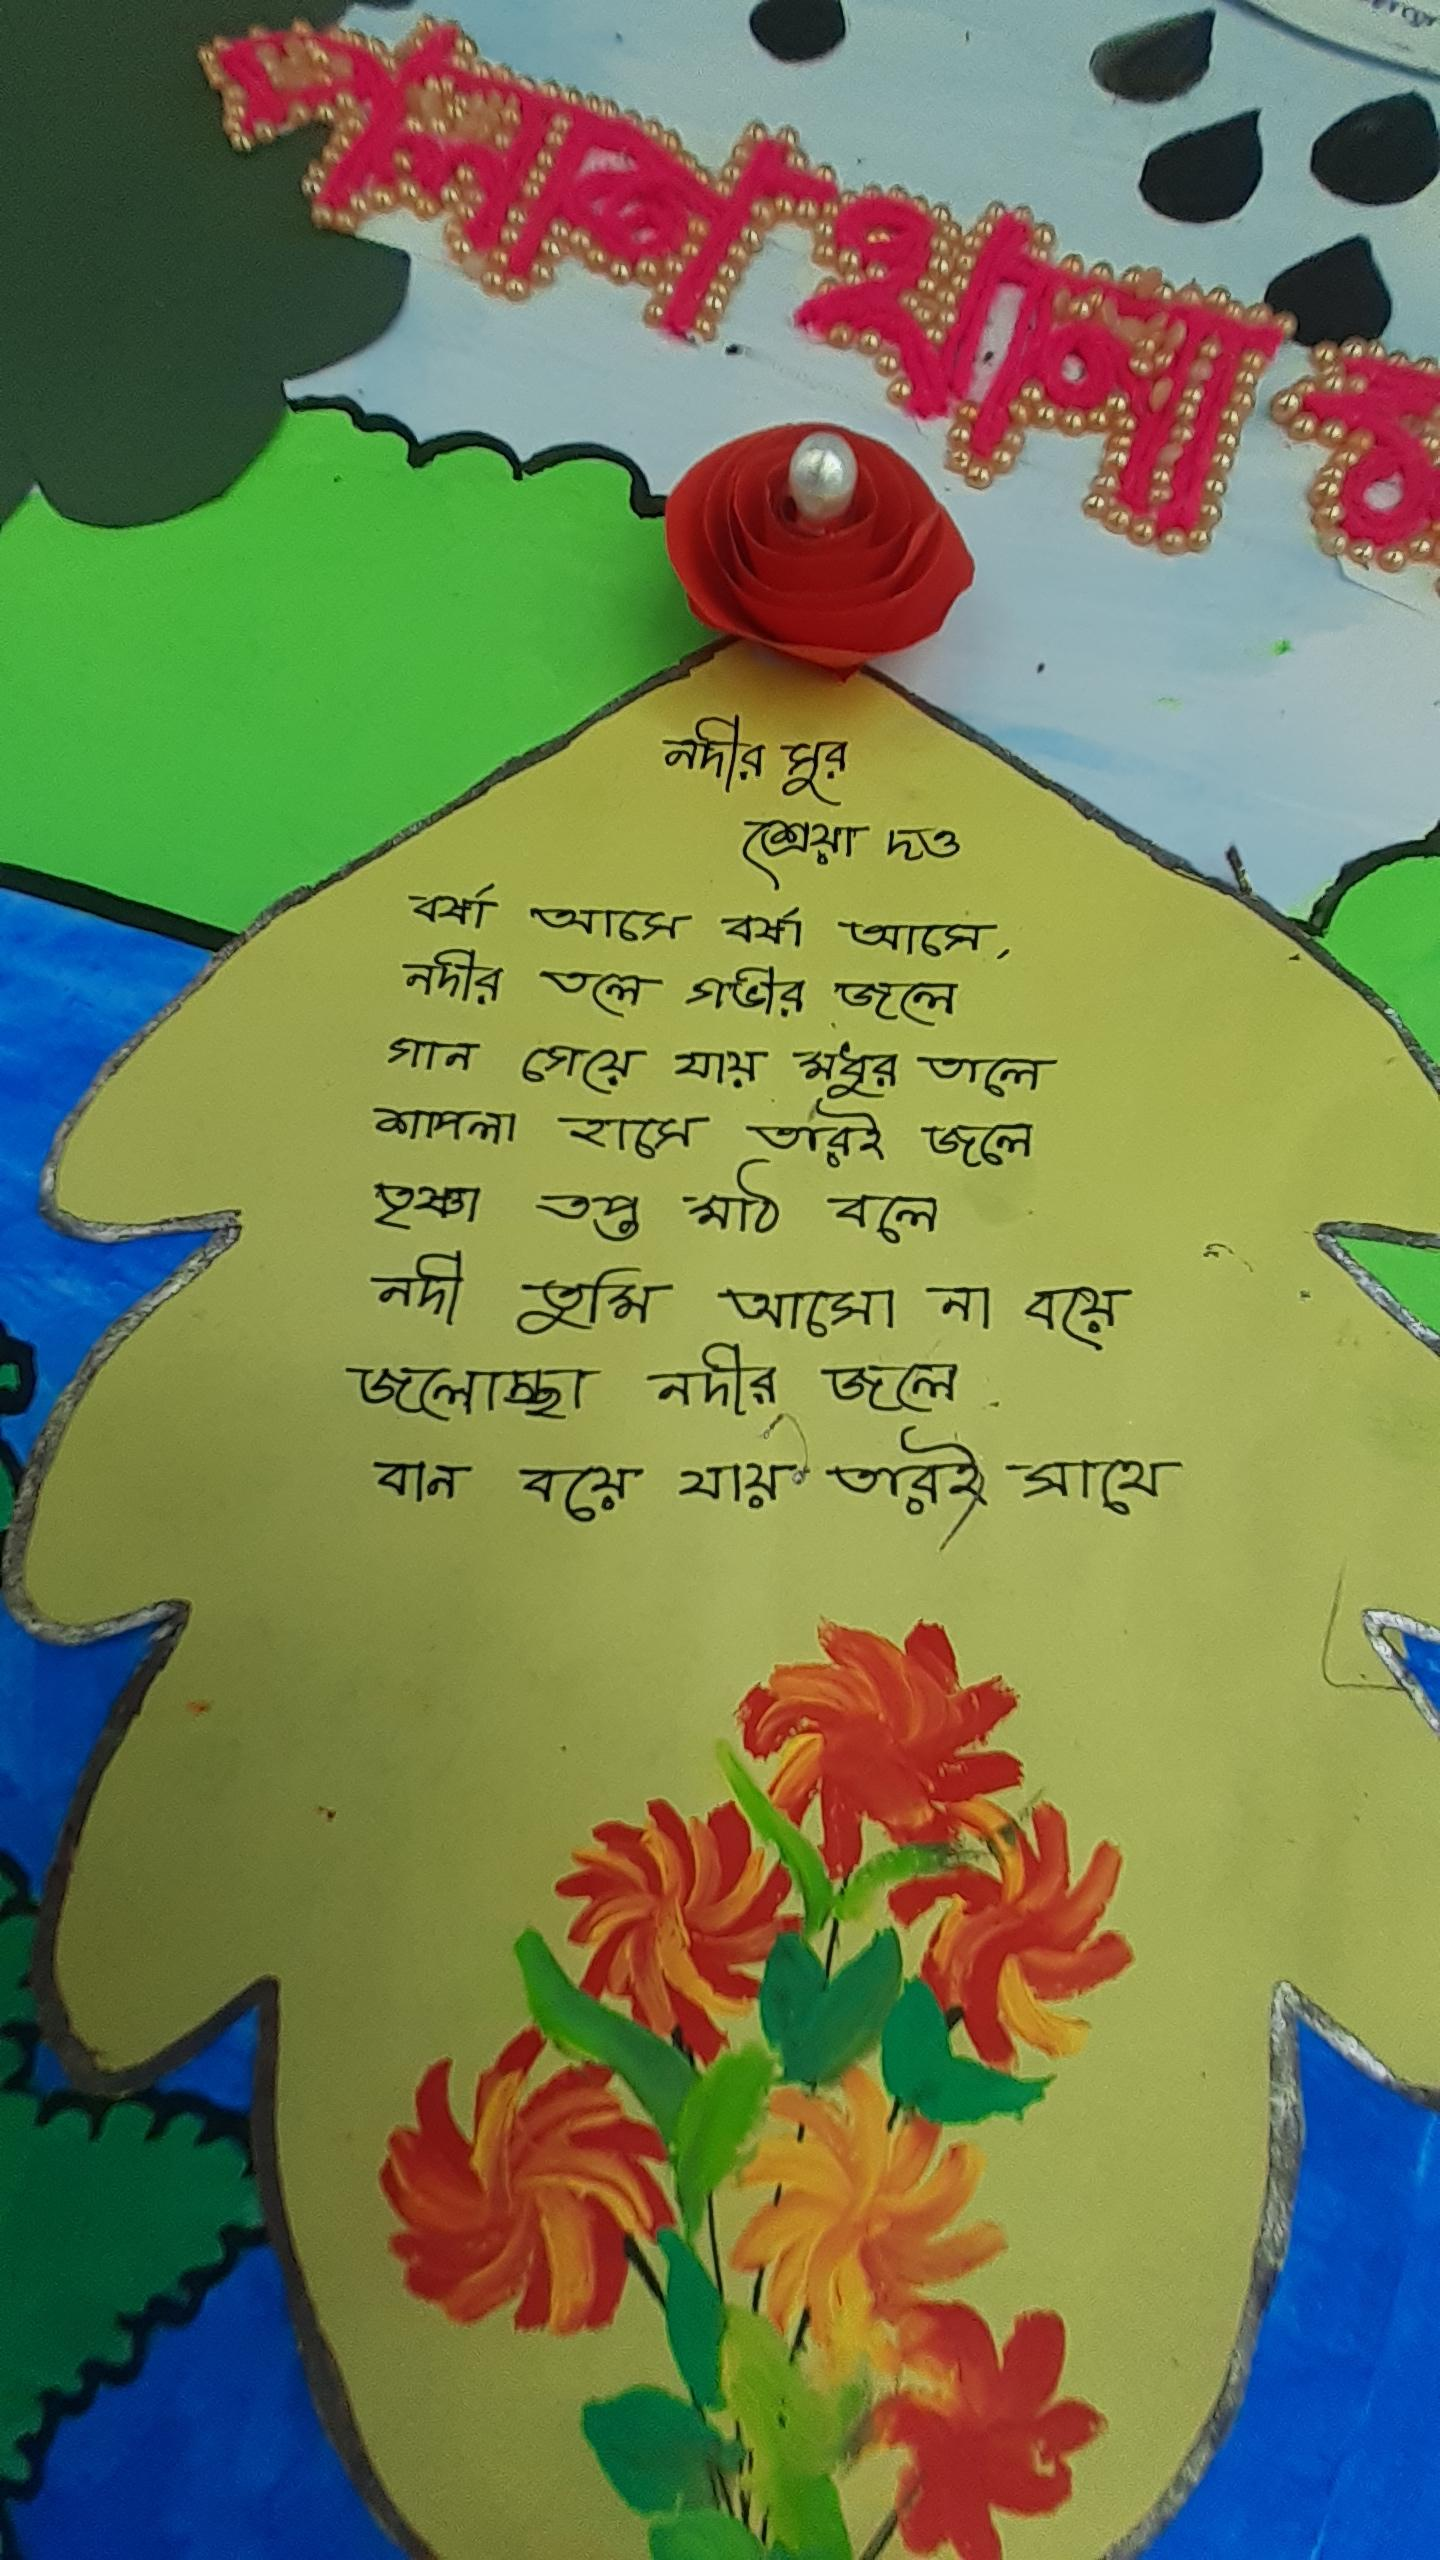 নদীর সুর
শ্রেয়া দত্ত
বর্ষা আসে বর্ষা আসে,
নদীর তলে গভীর জলে
গান গেয়ে যায় মধুর তালে
শাপলা হাসে তারই জলে
তৃষ্ণা তপ্ত মাঠ বলে
নদী তুমি আসো না বয়ে
জলোচ্ছা নদীর জলে
বান বয়ে যায় তারই সাথে